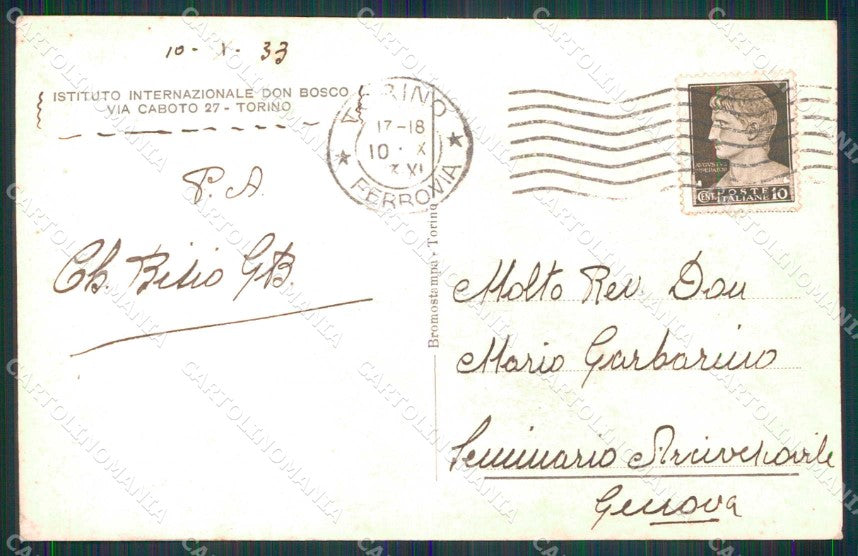 10 - X - 33
ISTITUTO INTERNAZIONALE DON BOSCO
VIA CABOTO 27 - TORINO
P. A.
Ch. Bisio G.B.
TORINO
17-18
10 · X
XI
FERROVIA
Bromostampa - Torino
POSTE
ITALIANE
CENT. 10
Molto Rev Don
Mario Garbarino
Seminario Arcivescovile
Genova
CARTOLINOMANIA